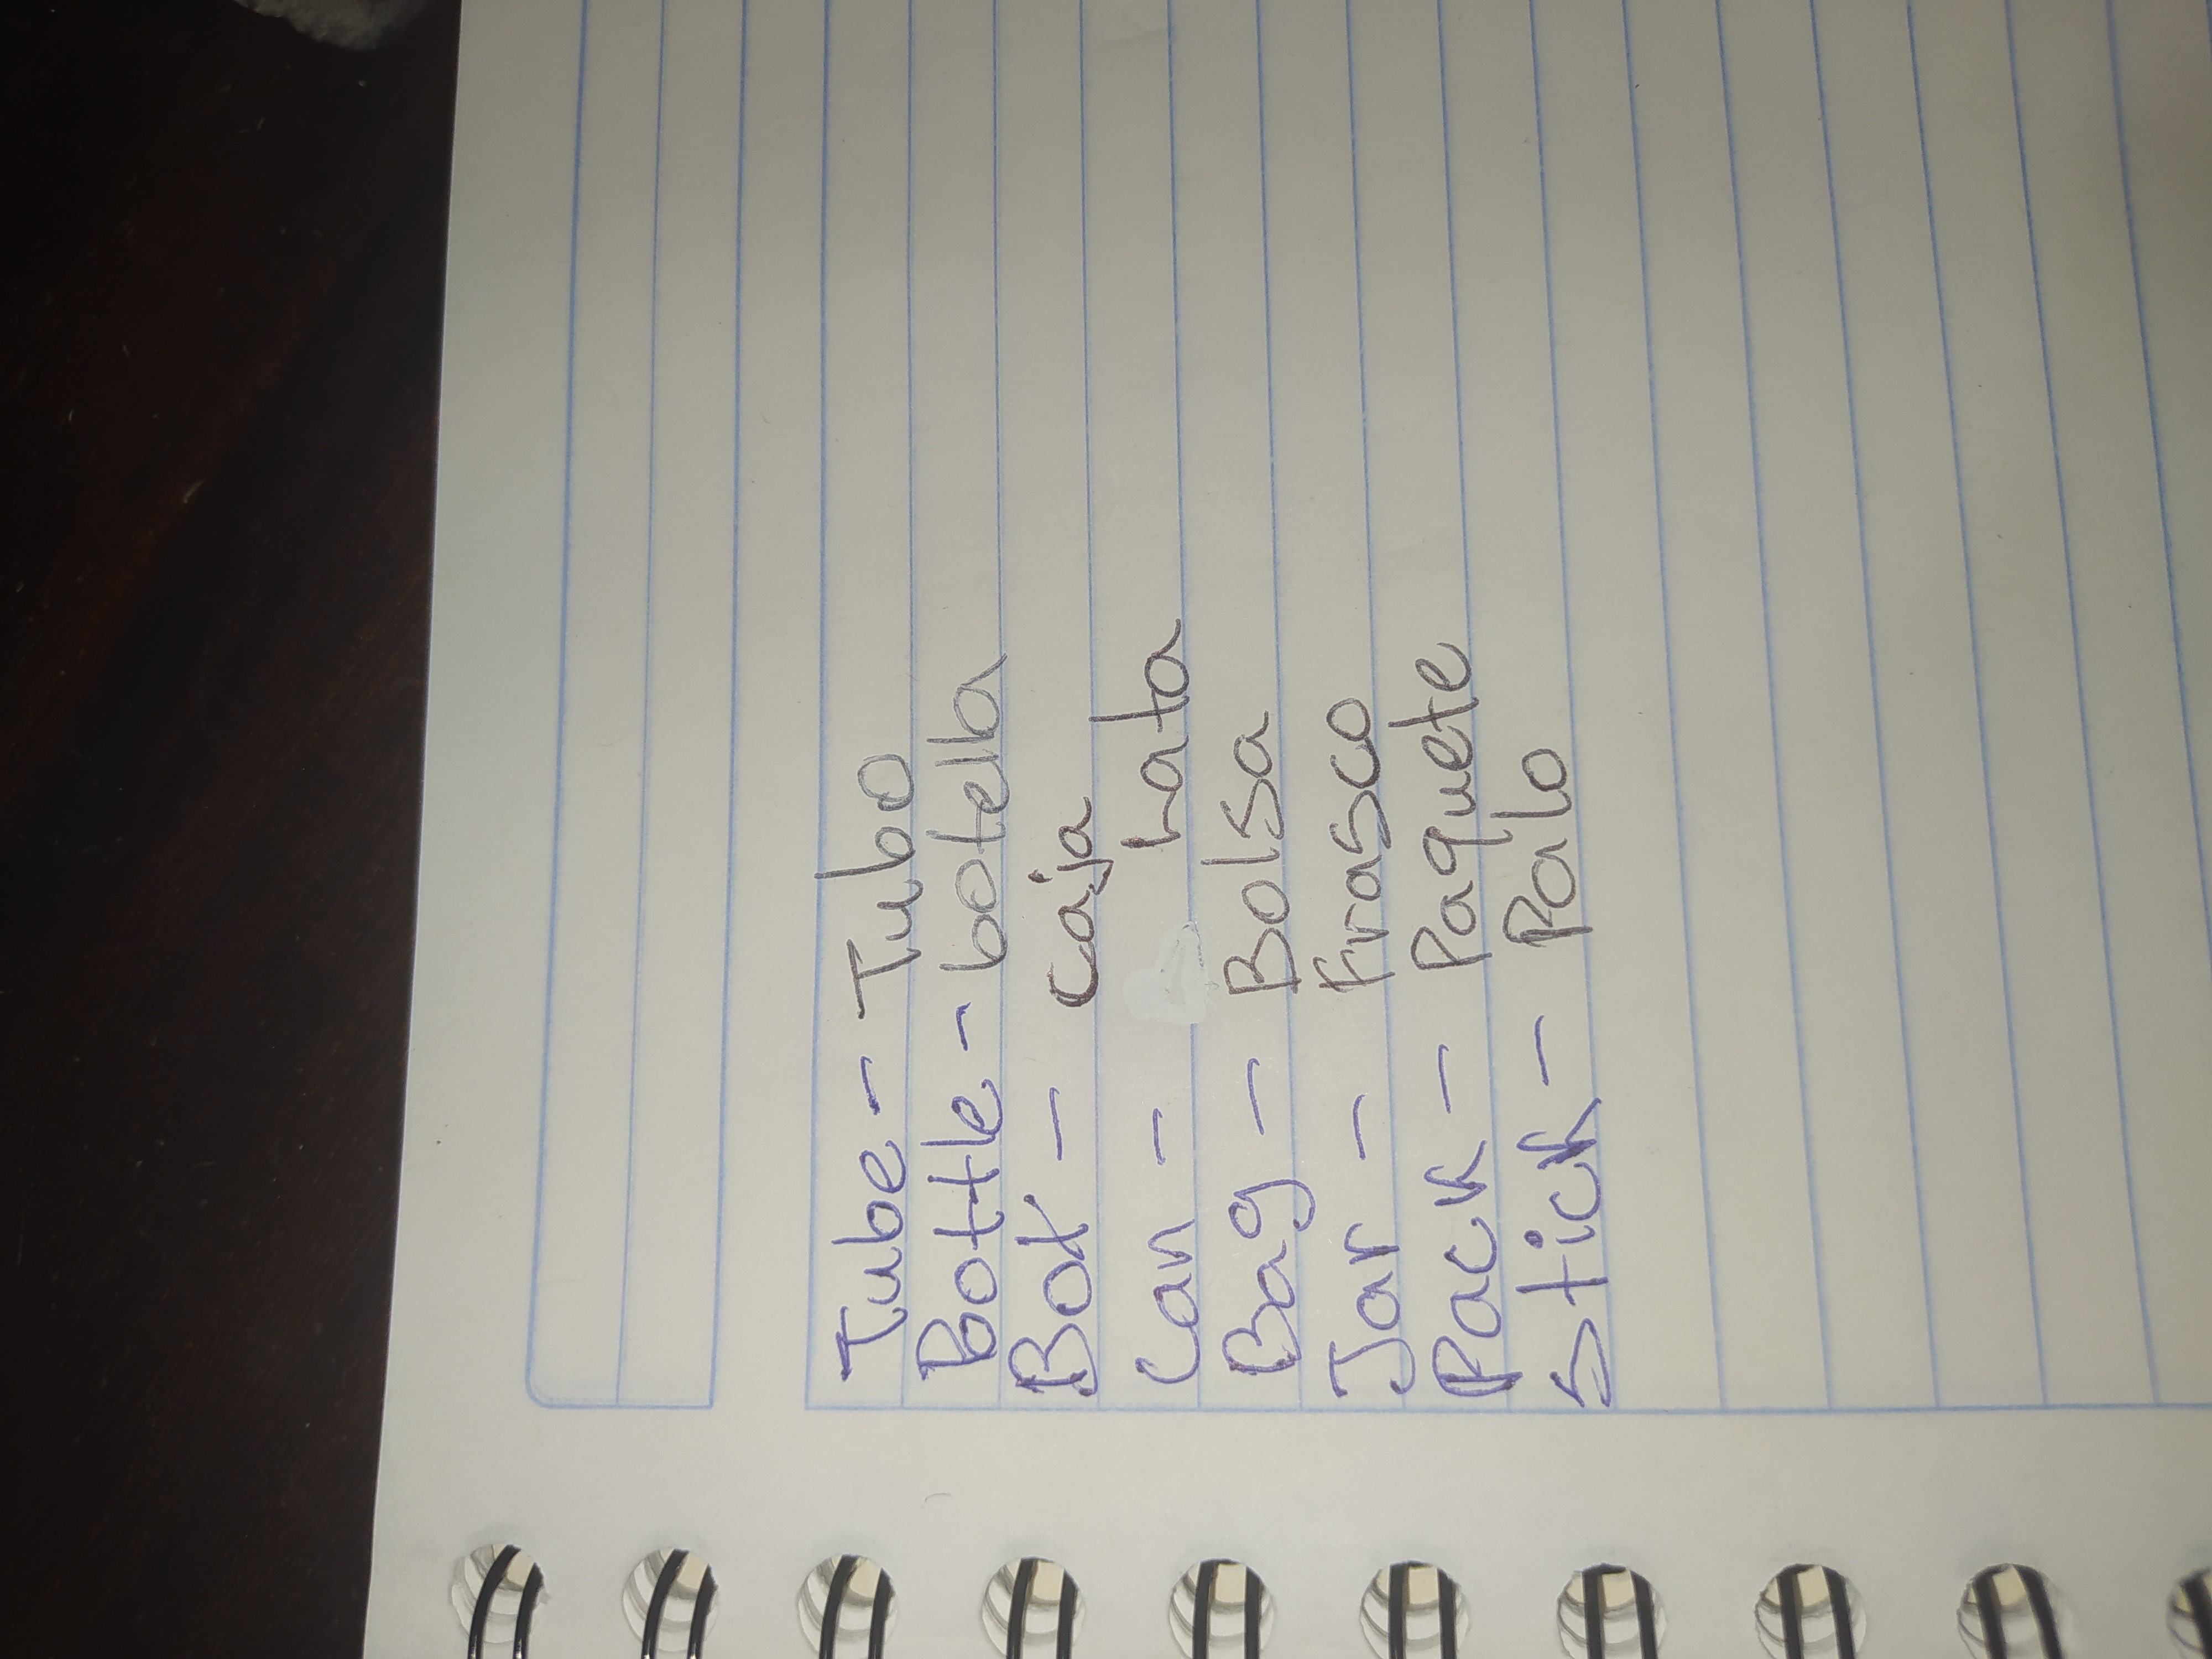 Tube - Tubo
Bottle - botella
Box - caja
Can - Lata
Bag - Bolsa
Jar - Frasco
Pack - Paquete
Stick - Palo